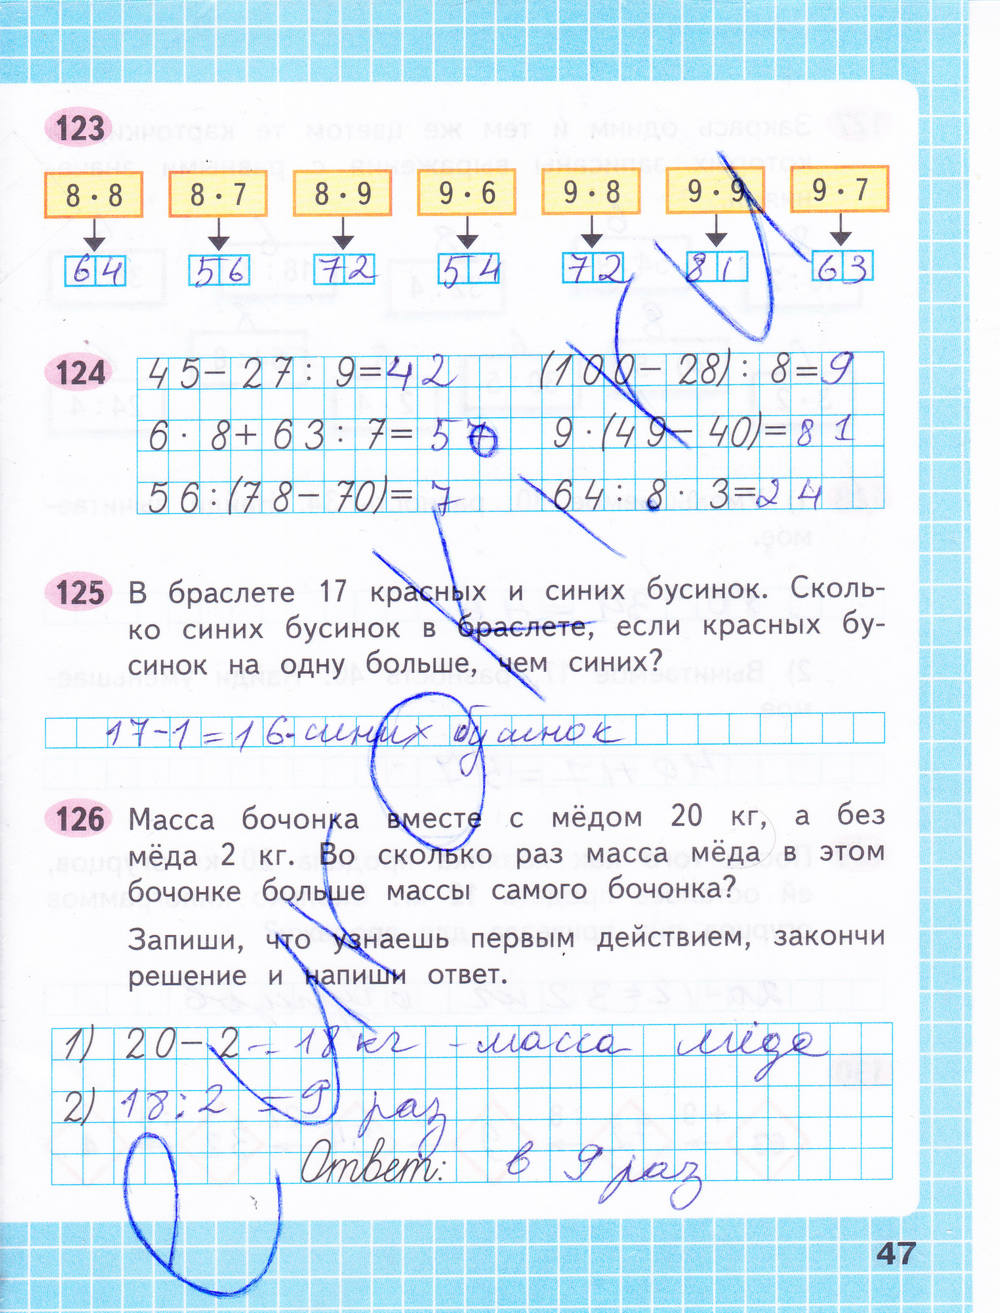 123
8 · 8 8 · 7 8 · 9 9 · 6 9 · 8 9 · 9 9 · 7
64 56 72 54 72 81 63
124
45 - 27 : 9 = 42 (100 - 28) : 8 = 9
6 · 8 + 63 : 7 = 57 9 · (49 - 40) = 81
56 : (78 - 70) = 7 64 : 8 · 3 = 24
125 В браслете 17 красных и синих бусинок. Сколь-
ко синих бусинок в браслете, если красных бу-
синок на одну больше, чем синих?
17-1=16-синих бусинок
126 Масса бочонка вместе с мёдом 20 кг, а без
мёда 2 кг. Во сколько раз масса мёда в этом
бочонке больше массы самого бочонка?
Запиши, что узнаешь первым действием, закончи
решение и напиши ответ.
1) 20 - 2 = 18 кг - масса мёда
2) 18 : 2 = 9 раз
Ответ: в 9 раз
47